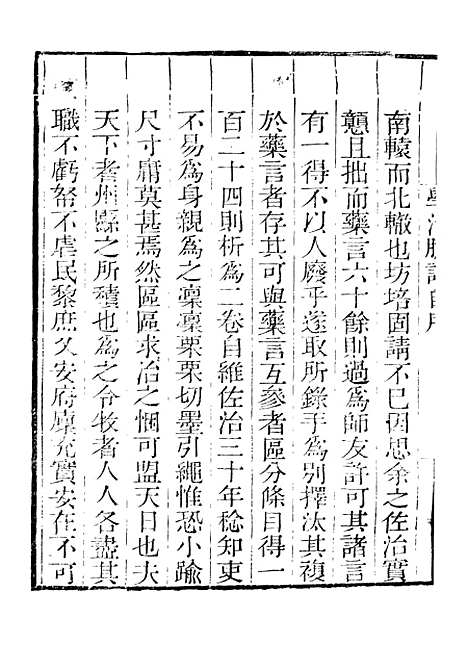 學治臆說自序
南轅而北轍也坊培固請不已因思余之佐治實
戇且拙而藥言六十餘則過爲師友許可其諸言
有一得不以人廢乎遂取所錄手爲別擇汰其複
於藥言者存其可與藥言互參者區分條目得一
百二十四則析爲二卷自維佐治三十年稔知吏
不易爲身親爲之稟稟栗栗切墨引繩惟恐小踰
尺寸庸莫甚焉然區區求治之悃可盟天日也夫
天下者州縣之所積也爲之令牧者人人各盡其
職不虧帑不虐民黎庶乂安府庫充實安在不可